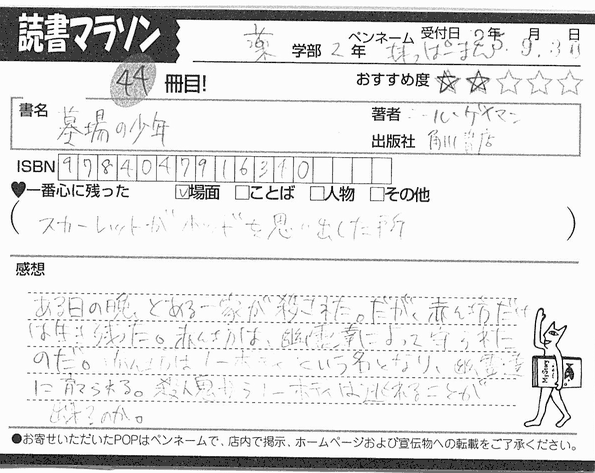 読書マラソン
薬 学部 2年 ペンネーム 受付日 年 月 日
44 冊目! おすすめ度 ★★☆☆☆
書名 墓場の少年 著者 ニール・ゲイマン
出版社 角川書店
ISBN 9784047916340
♥一番心に残った ☑場面 □ことば □人物 □その他
(スカーレットがボッドを思い出した所)
感想
ある日の晩、とある一家が殺された。だが、赤ん坊だけ
は生き残った。赤ん坊は、幽霊達によって守られた
のだ。赤ん坊はノーボディという名となり、幽霊達
に育てられる。殺人鬼からノーボディは逃れることが
出来るのか。
●お寄せいただいたPOPはペンネームで、店内で掲示、ホームページおよび宣伝物への転載をご了承ください。